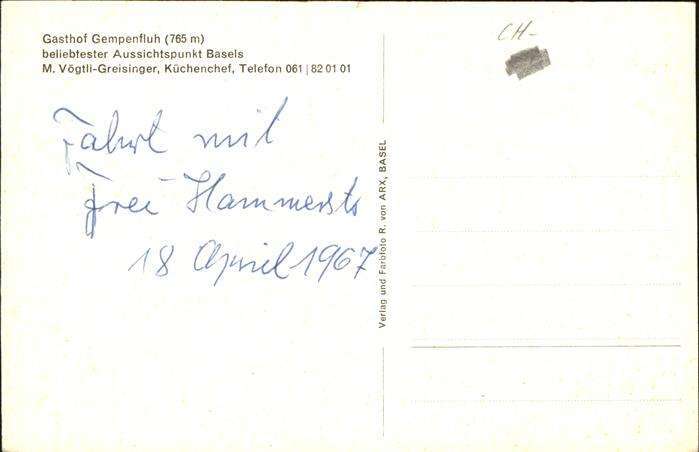 Gasthof Gempenfluh (765 m)
beliebtester Aussichtspunkt Basels
M. Vögtli-Greisinger, Küchenchef, Telefon 061 | 82 01 01
Fahrt mit
Frei
18 April 1967
Verlag und Farbfoto R. von ARX, BASEL
CH-